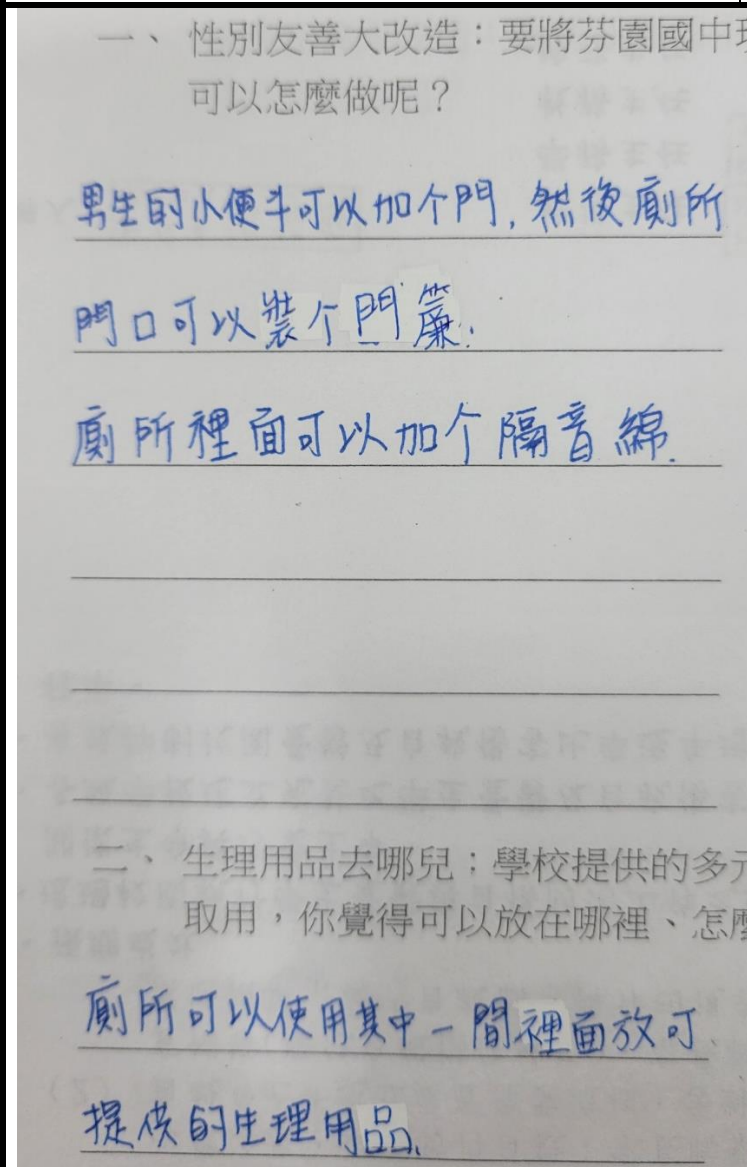 一、 性別友善大改造：要將芬園國中
可以怎麼做呢？
男生的小便斗可以加个門,然後廁所
門口可以裝个門簾.
廁所裡面可以加个隔音綿.
二、 生理用品去哪兒：學校提供的多元
取用，你覺得可以放在哪裡、怎麼
廁所可以使用其中一間裡面放可
提供的生理用品.